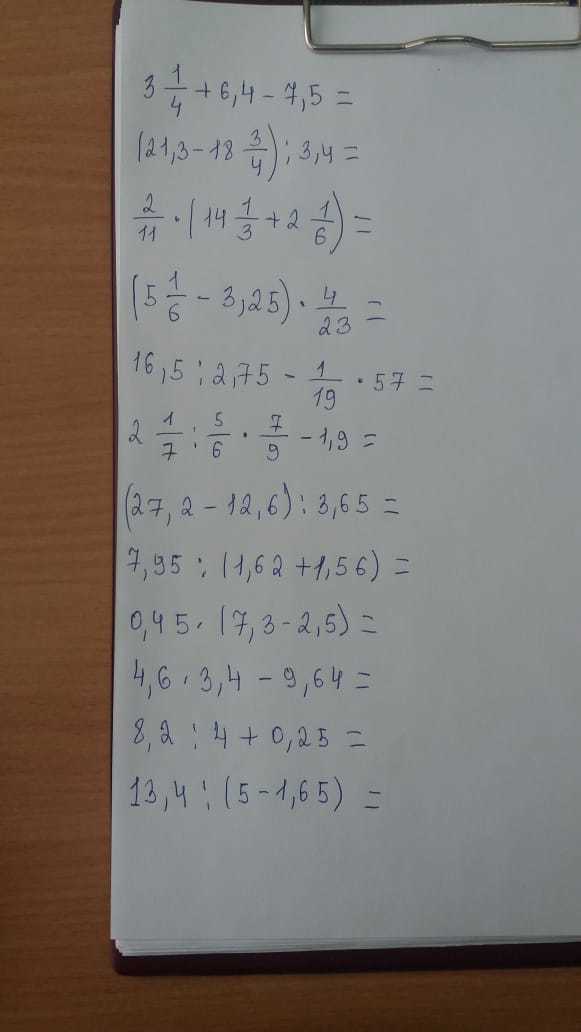 3 1/4 + 6,4 - 7,5 =
(21,3 - 18 3/4) : 3,4 =
2/11 · (14 1/3 + 2 1/6) =
(5 1/6 - 3,25) · 4/23 =
16,5 : 2,75 - 1/19 · 57 =
2 1/7 : 5/6 · 7/9 - 1,9 =
(27,2 - 12,6) : 3,65 =
7,95 : (1,62 + 1,56) =
0,45 · (7,3 - 2,5) =
4,6 · 3,4 - 9,64 =
8,2 : 4 + 0,25 =
13,4 : (5 - 1,65) =